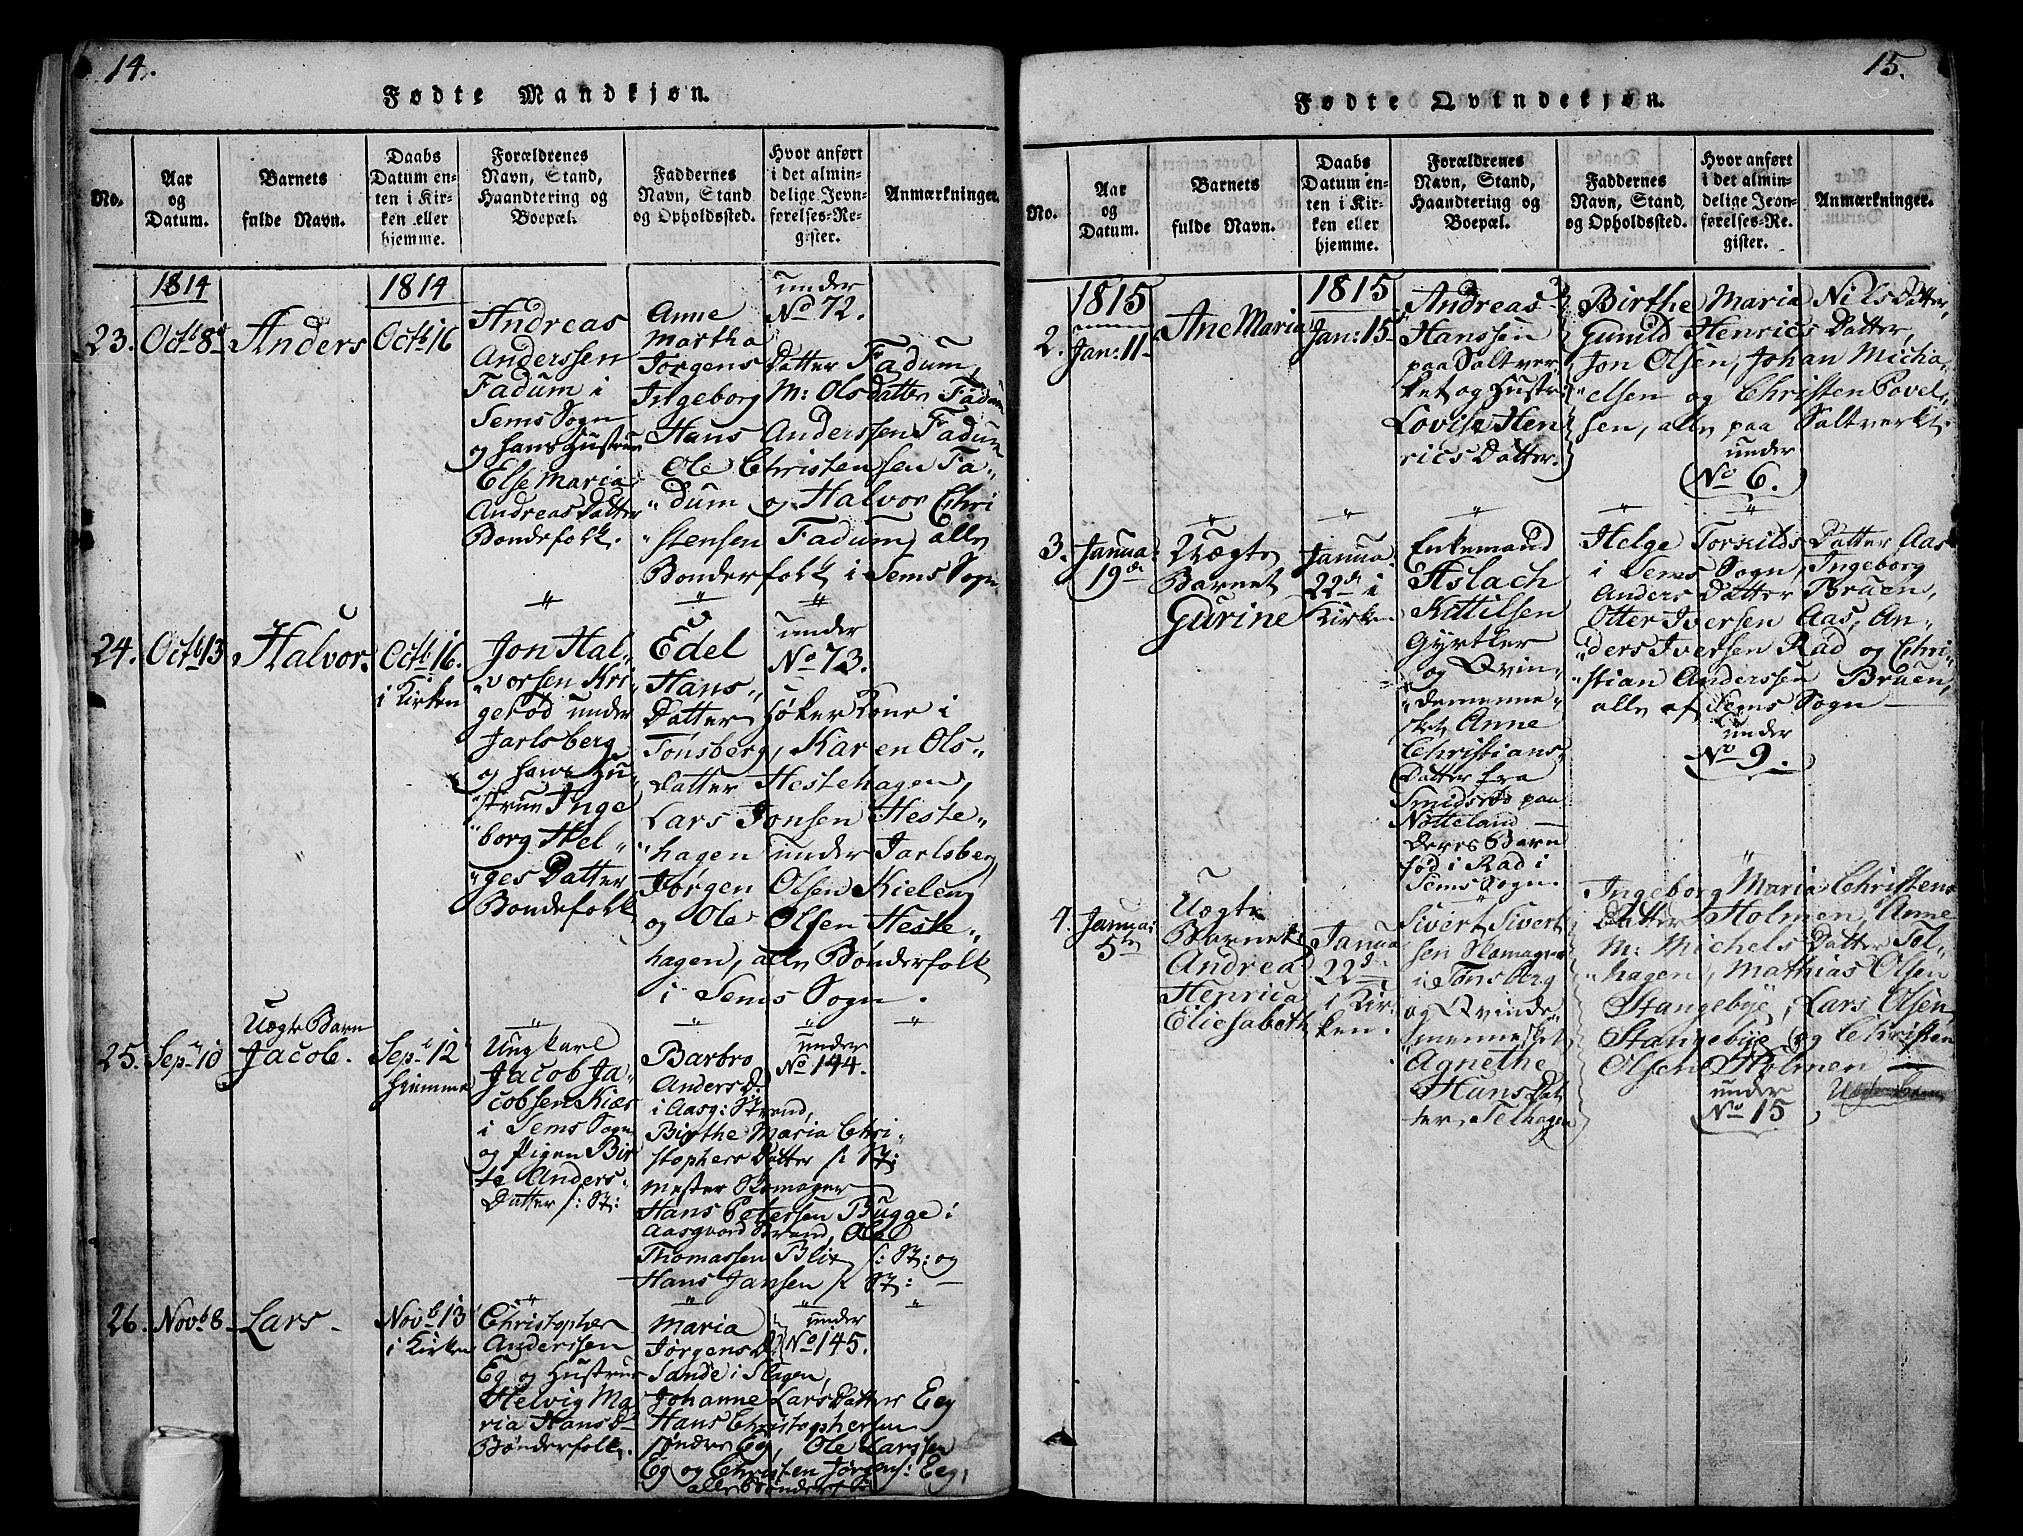 14.
Fødte Mandkjøn.
No.
Aar
og
Datum.
Barnets
fulde Navn.
Daabs
Datum en-
ten i Kir-
ken eller
hjemme.
Forældrenes
Navn, Stand,
Haandtering og
Boepæl.
Faddernes
Navn, Stand
og Opholdssted.
Hvor anført
i det almin-
delige Jevn-
førelses-Re-
gister.
Anmærkninger.
1814
1814
23.
Octb 8de
Anders
Octb 16
Andreas
Anderssen
Fadum i
Sems Sogn
og hans Hustrue
Else Maria
Andreas Datter
Bondefolk.
under
No 72.
Anne
Martha
Jørgens Datter Fadum,
Ingeborg M: Ols Datter Fadum
Hans Anderssen Fadum
Ole Christensen Fa-
"dum og Halvor Chri
stensen Fadum, alle
Bønderfolk i Sems Sogn
24.
Octb 13
Halvor.
Octb 16.
i Kirken
Jon Hal-
"vorsen Kri-
gerød under
Jarlsberg
og hans Hu-
"strue Inge
"borg Hel-
"ges Datter
Bondefolk
under
No 73.
Edel
Hans-
Datter Høker Kone i
Tønsberg, Karen Ols-
Datter Hestehagen,
Lars Jonsen Heste-
"hagen under Jarlsberg
Jørgen Olsen Kieleng
og Ole Olsen Heste-
hagen, alle Bønderfolk
i Sems Sogn.
25.
Sep. 10
Uægte Barn
Jacob.
Sep. 12
hiemme
Ungkarl
Jacob Ja-
cobsen Kiær
i Sems Sogn
og Pigen Bir
te Anders-
Datter /: St:
under
No 144.
Barbro
Anders D.
i Aasg: Strand,
Birthe Maria Chri-
stophers Datter /: St:
mester Skomager
Hans Petersen Bugge i
Aasgaard Strand, Ole
Thomassen Blix /: St: og
Hans Jansen /: St:
26.
Novb 8
Lars
Novb 13
i Kirken
Christopher
Anderssen
Eg og Hustrue
Helvig Ma
ria Hans D.
Bønderfolk.
under
No 145.
Maria
Jørgens D.
Sande i Slagen,
Johanne Lars Datter Eeg
Hans Christophersen
Søndre Eg, Ole Larssen
Eg og Christen Jørgens: Eeg,
alle Bønderf:
15.
Fødte Qvindekjøn.
No.
Aar
og
Datum.
Barnets
fulde Navn.
Daabs
Datum en-
ten i Kir-
ken eller
hjemme.
Forældrenes
Navn, Stand,
Haandtering og
Boepæl.
Faddernes
Navn, Stand
og Opholdssted.
Hvor anført
i det almin-
delige Jevn-
førelses-Re-
gister.
Anmærkninger.
1815
1815
2.
Jan: 11
Ane Maria
Jan: 15
Andreas
Hanssen
paa Saltver-
ket og Hustr:
Lovise Hen
rics Datter.
Birthe Maria Nils Datter,
Gunild Henrics Datter,
Jon Olsen, Johan Micha
"elsen og Christen Povel-
sen, alle paa Saltverket.
under
No 6.
3.
Janua:
19de
Uægte
Barnet
Gurine
Janua.
22de i
Kirken
Enkemand
Aslach
Kittilsen
Gyrtler
og Qvin-
"demenne-
sket Anne
Christians
Datter fra
Smidsrø paa
Nøtteland
Deres Barn
fød i Rad i
Sems Sogn.
Helge Torkilds Datter Aas
i Sems Sogn, Ingeborg
Anders Datter Bruen,
Otter Iversen Aas, An-
"ders Iversen Rad og Chri-
"stian Anderssen Bruen,
alle af Sems Sogn
under
No 9.
4.
Janua:
5te
Uægte
Barnet
Andrea
Henrica
Eliesabeth
Janua
22de
i Kir-
ken.
Sivert Sivert
sen Skomager
i Tønsberg
og Qvinde-
mennesket
Agnethe
Hans Dat
ter, Telhagen
Ingeborg Maria Christens
Datter Holmen, Anne
M: Michels Datter Tel-
"hagen, Mathias Olsen
Stangebye, Lars Olsen
Stangebye og Christen
Olsen Holmen
under
No 15